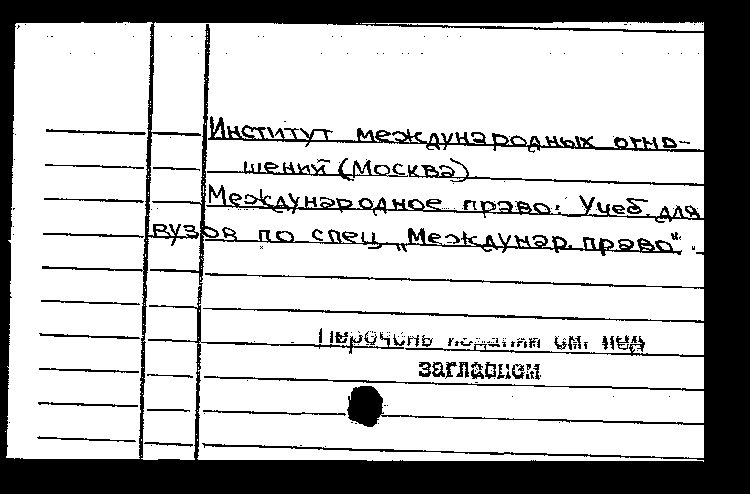 Институт международных отно-
шений (Москва)
Международное право: Учеб. для
вузов по спец. „Междунар. право“.
Перечень изданий см. под
заглавием